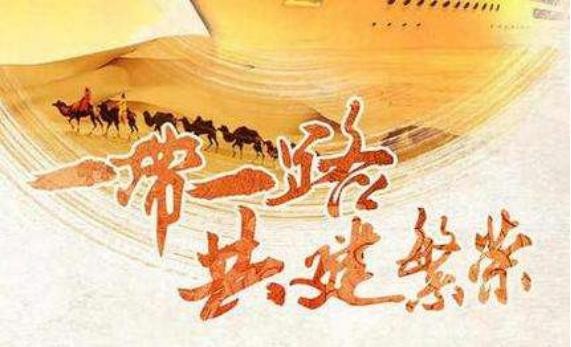 一带一路
共建繁荣